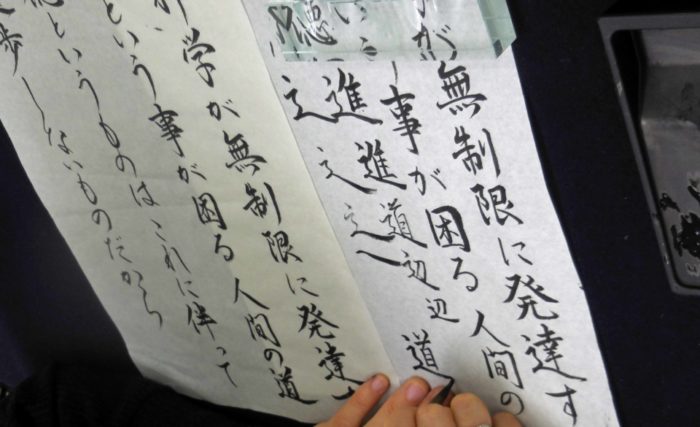 が無制限に発達す
事が困る人間の
進道辺辺道
進之之
学が無制限に発達す
という事が困る人間の道
というものはこれに伴って
歩しないものだから